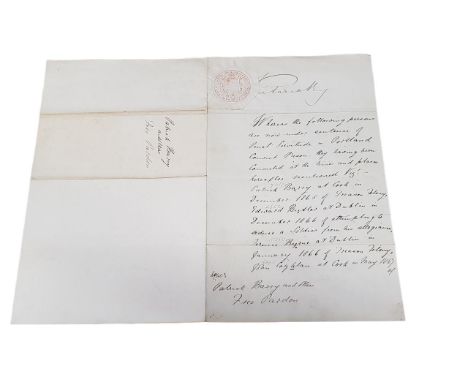 Patrick Barry
and Others
Free Pardon
Victoria R
Whereas the following persons
are now under sentence of
Penal Servitude in Portland
Convict Prison they having been
Convicted at the time and place
hereafter mentioned Viz -
Patrick Barry at Cork in
December 1865 of Treason Felony
Edward at Dublin in
December 1866 of attempting to
seduce a Soldier from his allegiance
at Dublin in
January 1866 of Treason Felony
John at Cork in May 1867
of
Patrick Barry and others
Free Pardon